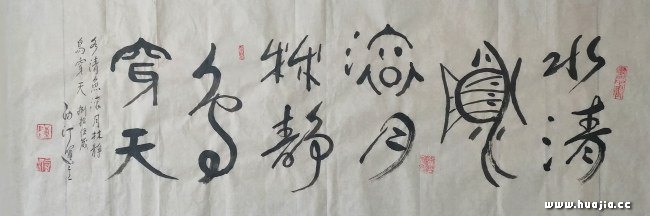 水清
魚
浴月
林静
鸟
穿天
水清魚浴月林静
鸟穿天
www.huajia.cc